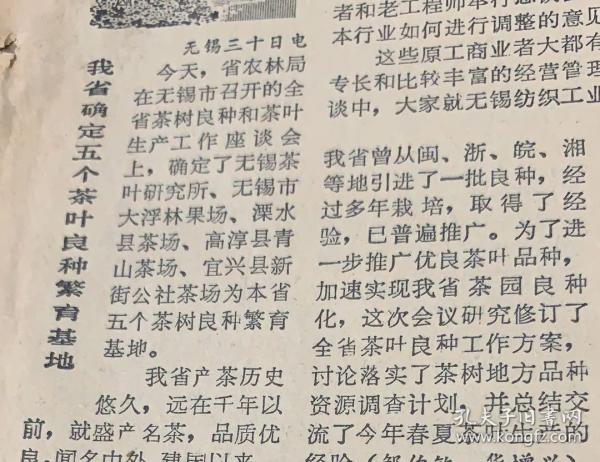 我省确定五个茶叶良种繁育基地
无锡三十日电
今天，省农林局
在无锡市召开的全
省茶树良种和茶叶
生产工作座谈会
上，确定了无锡茶
叶研究所、无锡市
大浮林果场、溧水
县茶场、高淳县青
山茶场、宜兴县新
街公社茶场为本省
五个茶树良种繁育
基地。
我省产茶历史
悠久，远在千年以
前，就盛产名茶，品质优
良，闻名中外。建国以来，
我省曾从闽、浙、皖、湘
等地引进了一批良种，经
过多年栽培，取得了经
验，已普遍推广。为了进
一步推广优良茶叶品种，
加速实现我省茶园良种
化，这次会议研究修订了
全省茶叶良种工作方案，
讨论落实了茶树地方品种
资源调查计划，并总结交
流了今年春夏茶叶生产的
经验
者和老工程师
本行业如何进行调整的意见
这些原工商业者大都有
专长和比较丰富的经营管理
谈中，大家就无锡纺织工业
孔夫子旧书网